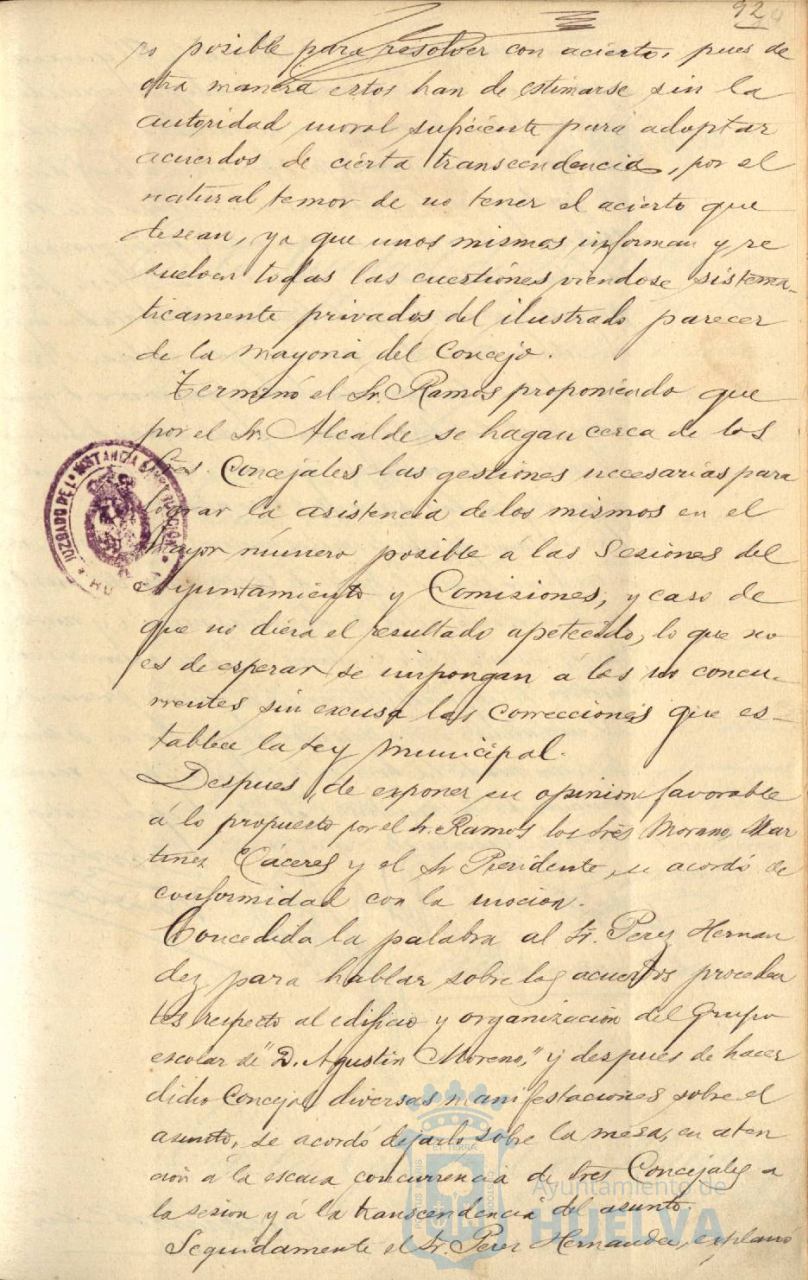 92
ro posible para resolver con acierto, pues de
otra manera estos han de estimarse sin la
autoridad moral suficiente para adoptar
acuerdos de cierta transcendencia, por el
natural temor de no tener el acierto que
desean, ya que unos mismos informan y re
suelven todas las cuestiónes viendose sistema-
ticamente privados del ilustrado parecer
de la mayoria del Concejo.
Terminó el Sr. Ramos proponiendo que
por el Sr. Alcalde se hagan cerca de los
Sres. Concejales las gestiones necesarias para
lograr la asistencia de los mismos en el
mayor número posible á las Sesiones del
Ayuntamiento y Comisiones, y caso de
que no diera el resultado apetecido, lo que no
es de esperar se impongan á los no concu-
rrentes sin excusa las correcciones que es-
tablece la Ley Municipal.
Despues de exponer su opinion favorable
á lo propuesto por el Sr. Ramos los Sres Morano, Mar
tinez Cáceres y el Sr Presidente, se acordó de
conformidad con la mocion.
Concedida la palabra al Sr. Perez Hernan
dez para hablar sobre los acuerdos proceden
tes respecto al edificio y organización del Grupo
escolar de "D. Agustin Moreno," y despues de hacer
dicho Concejal diversas manifestaciones sobre el
asunto, se acordó dejarlo sobre la mesa, en aten
ción á la escasa concurrencia de Sres Concejales a
la sesion y á la transcendencia del asunto.
Seguidamente el Sr. Perez Hernandez, explanó
JUZGADO DE 1ª INSTANCIA E INSTRUCCION
HUELVA
Ayuntamiento de
HUELVA